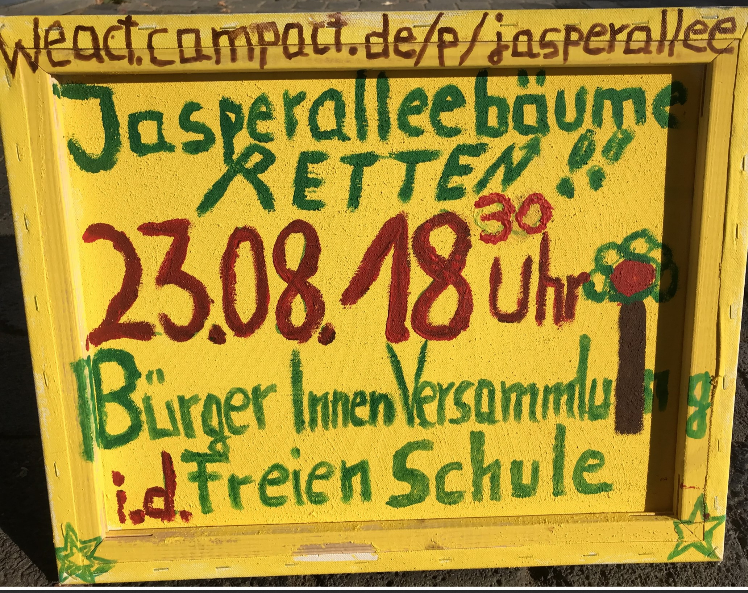 weact.campact.de/p/jasperallee
Jasperalleebäume
RETTEN!!
23.08. 18 30 Uhr
Bürger Innen Versammlung
i.d. Freien Schule